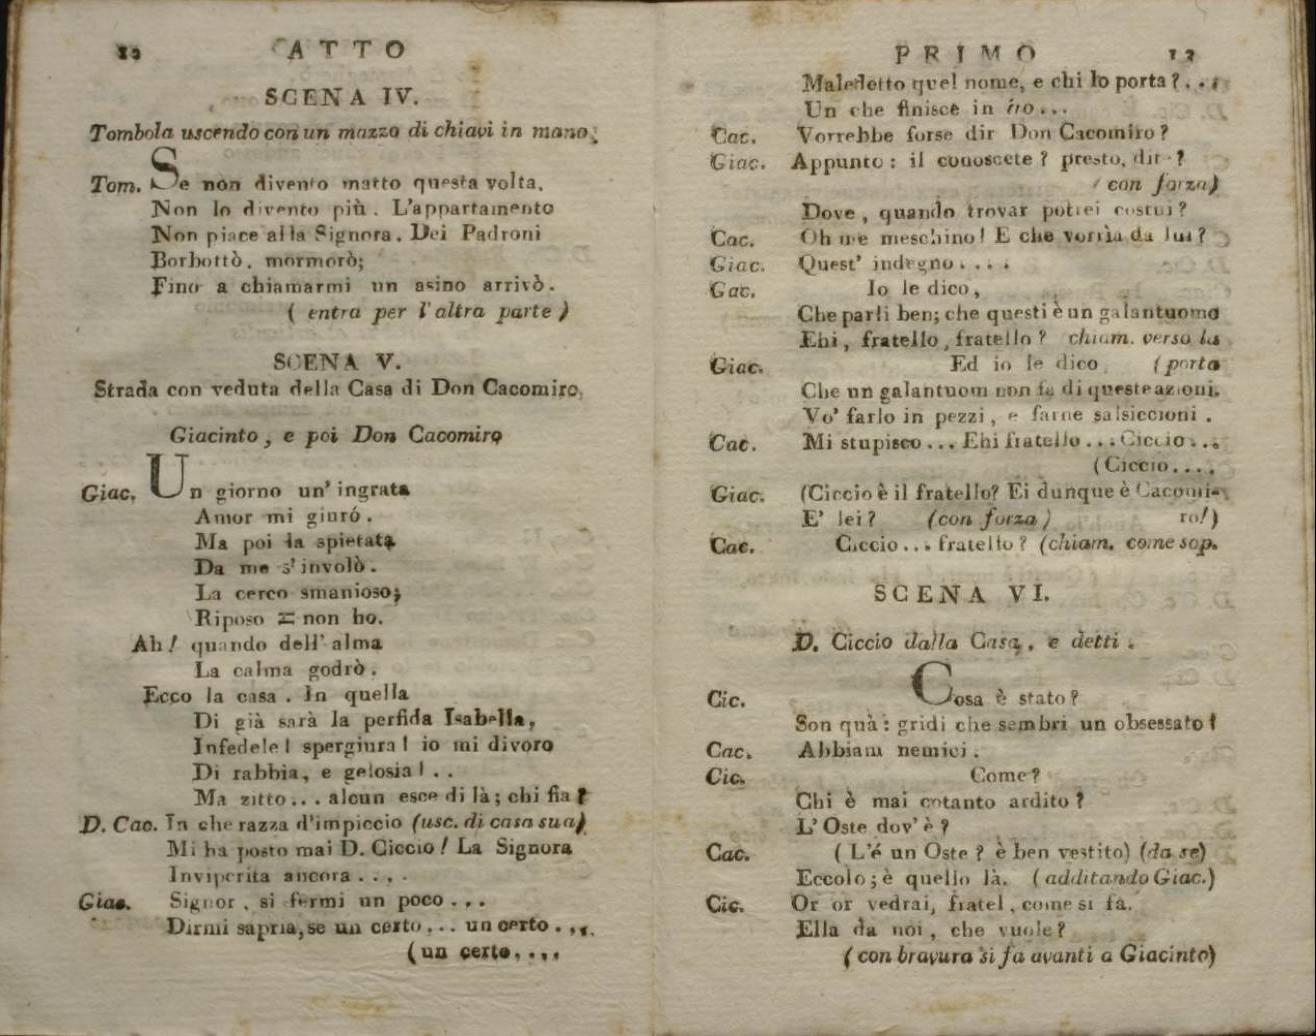 12 ATTO
SCENA IV.
Tombola uscendo con un mazzo di chiavi in mano;
Tom. Se non divento matto questa volta,
Non lo divento più. L'appartamento
Non piace alla Signora. Dei Padroni
Borbottò, mormorò;
Fino a chiamarmi un asino arrivò.
( entra per l'altra parte )
SCENA V.
Strada con veduta della Casa di Don Cacomiro.
Giacinto, e poi Don Cacomiro
Giac. Un giorno un' ingrata
Amor mi giuró.
Ma poi la spietata
Da me s'involò.
La cerco smanioso;
Riposo non ho.
Ah! quando dell' alma
La calma godrò.
Ecco la casa. In quella
Di già sarà la perfida Isabella,
Infedele! spergiura! io mi divoro
Di rabbia, e gelosia!..
Ma zitto... alcun esce di là; chi fia?
D. Cac. In che razza d'impiccio (usc. di casa sua)
Mi ha posto mai D. Ciccio! La Signora
Inviperita ancora....
Giac. Signor, si fermi un poco...
Dirmi sapria, se un certo... un certo...
(un certo....
PRIMO 13
Maledetto quel nome, e chi lo porta?...
Un che finisce in iro...
Cac. Vorrebbe forse dir Don Cacomiro?
Giac. Appunto: il conoscete? presto, dite?
( con forza)
Dove, quando trovar potrei costui?
Cac. Oh me meschino! E che vorria da lui?
Giac. Quest' indegno....
Cac. Io le dico,
Che parli ben; che questi è un galantuomo
Ehi, fratello, fratello? chiam. verso la
Giac. Ed io le dico (porta
Che un galantuom non fa di queste azioni.
Vo' farlo in pezzi, e farne salsiccioni.
Cac. Mi stupisco... Ehi fratello... Ciccio...
(Ciccio....
Giac. (Ciccio è il fratello? Ei dunque è Cacomi-
E' lei? (con forza) ro!)
Cac. Ciccio... fratello? (chiam. come sop.
SCENA VI.
D. Ciccio dalla Casa, e detti.
Cic. Cosa è stato?
Son quà: gridi che sembri un obsessato!
Cac. Abbiam nemici.
Cic. Come?
Chi è mai cotanto ardito?
L'Oste dov' è?
Cac. ( L'é un Oste? è ben vestito) (da se)
Eccolo; è quello là. (additando Giac.)
Cic. Or or vedrai, fratel, come si fa.
Ella da noi, che vuole?
(con bravura si fa avanti a Giacinto)